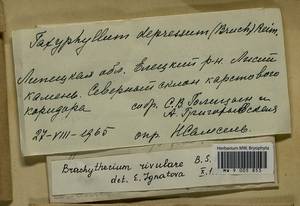 Taxyphyllum depressum (Bruch) Reim.
Липецкая обл. Елецкий р-н. Лисий
камень. Северный склон карстового
коридора собр. С.В. Голицын и
А. Григорьевская
27-VIII-1965 опр.
Brachythecium rivulare B.S.
det. E. Ignatova X.1
Herbarium MW, Bryophyta
MW 9 005 855